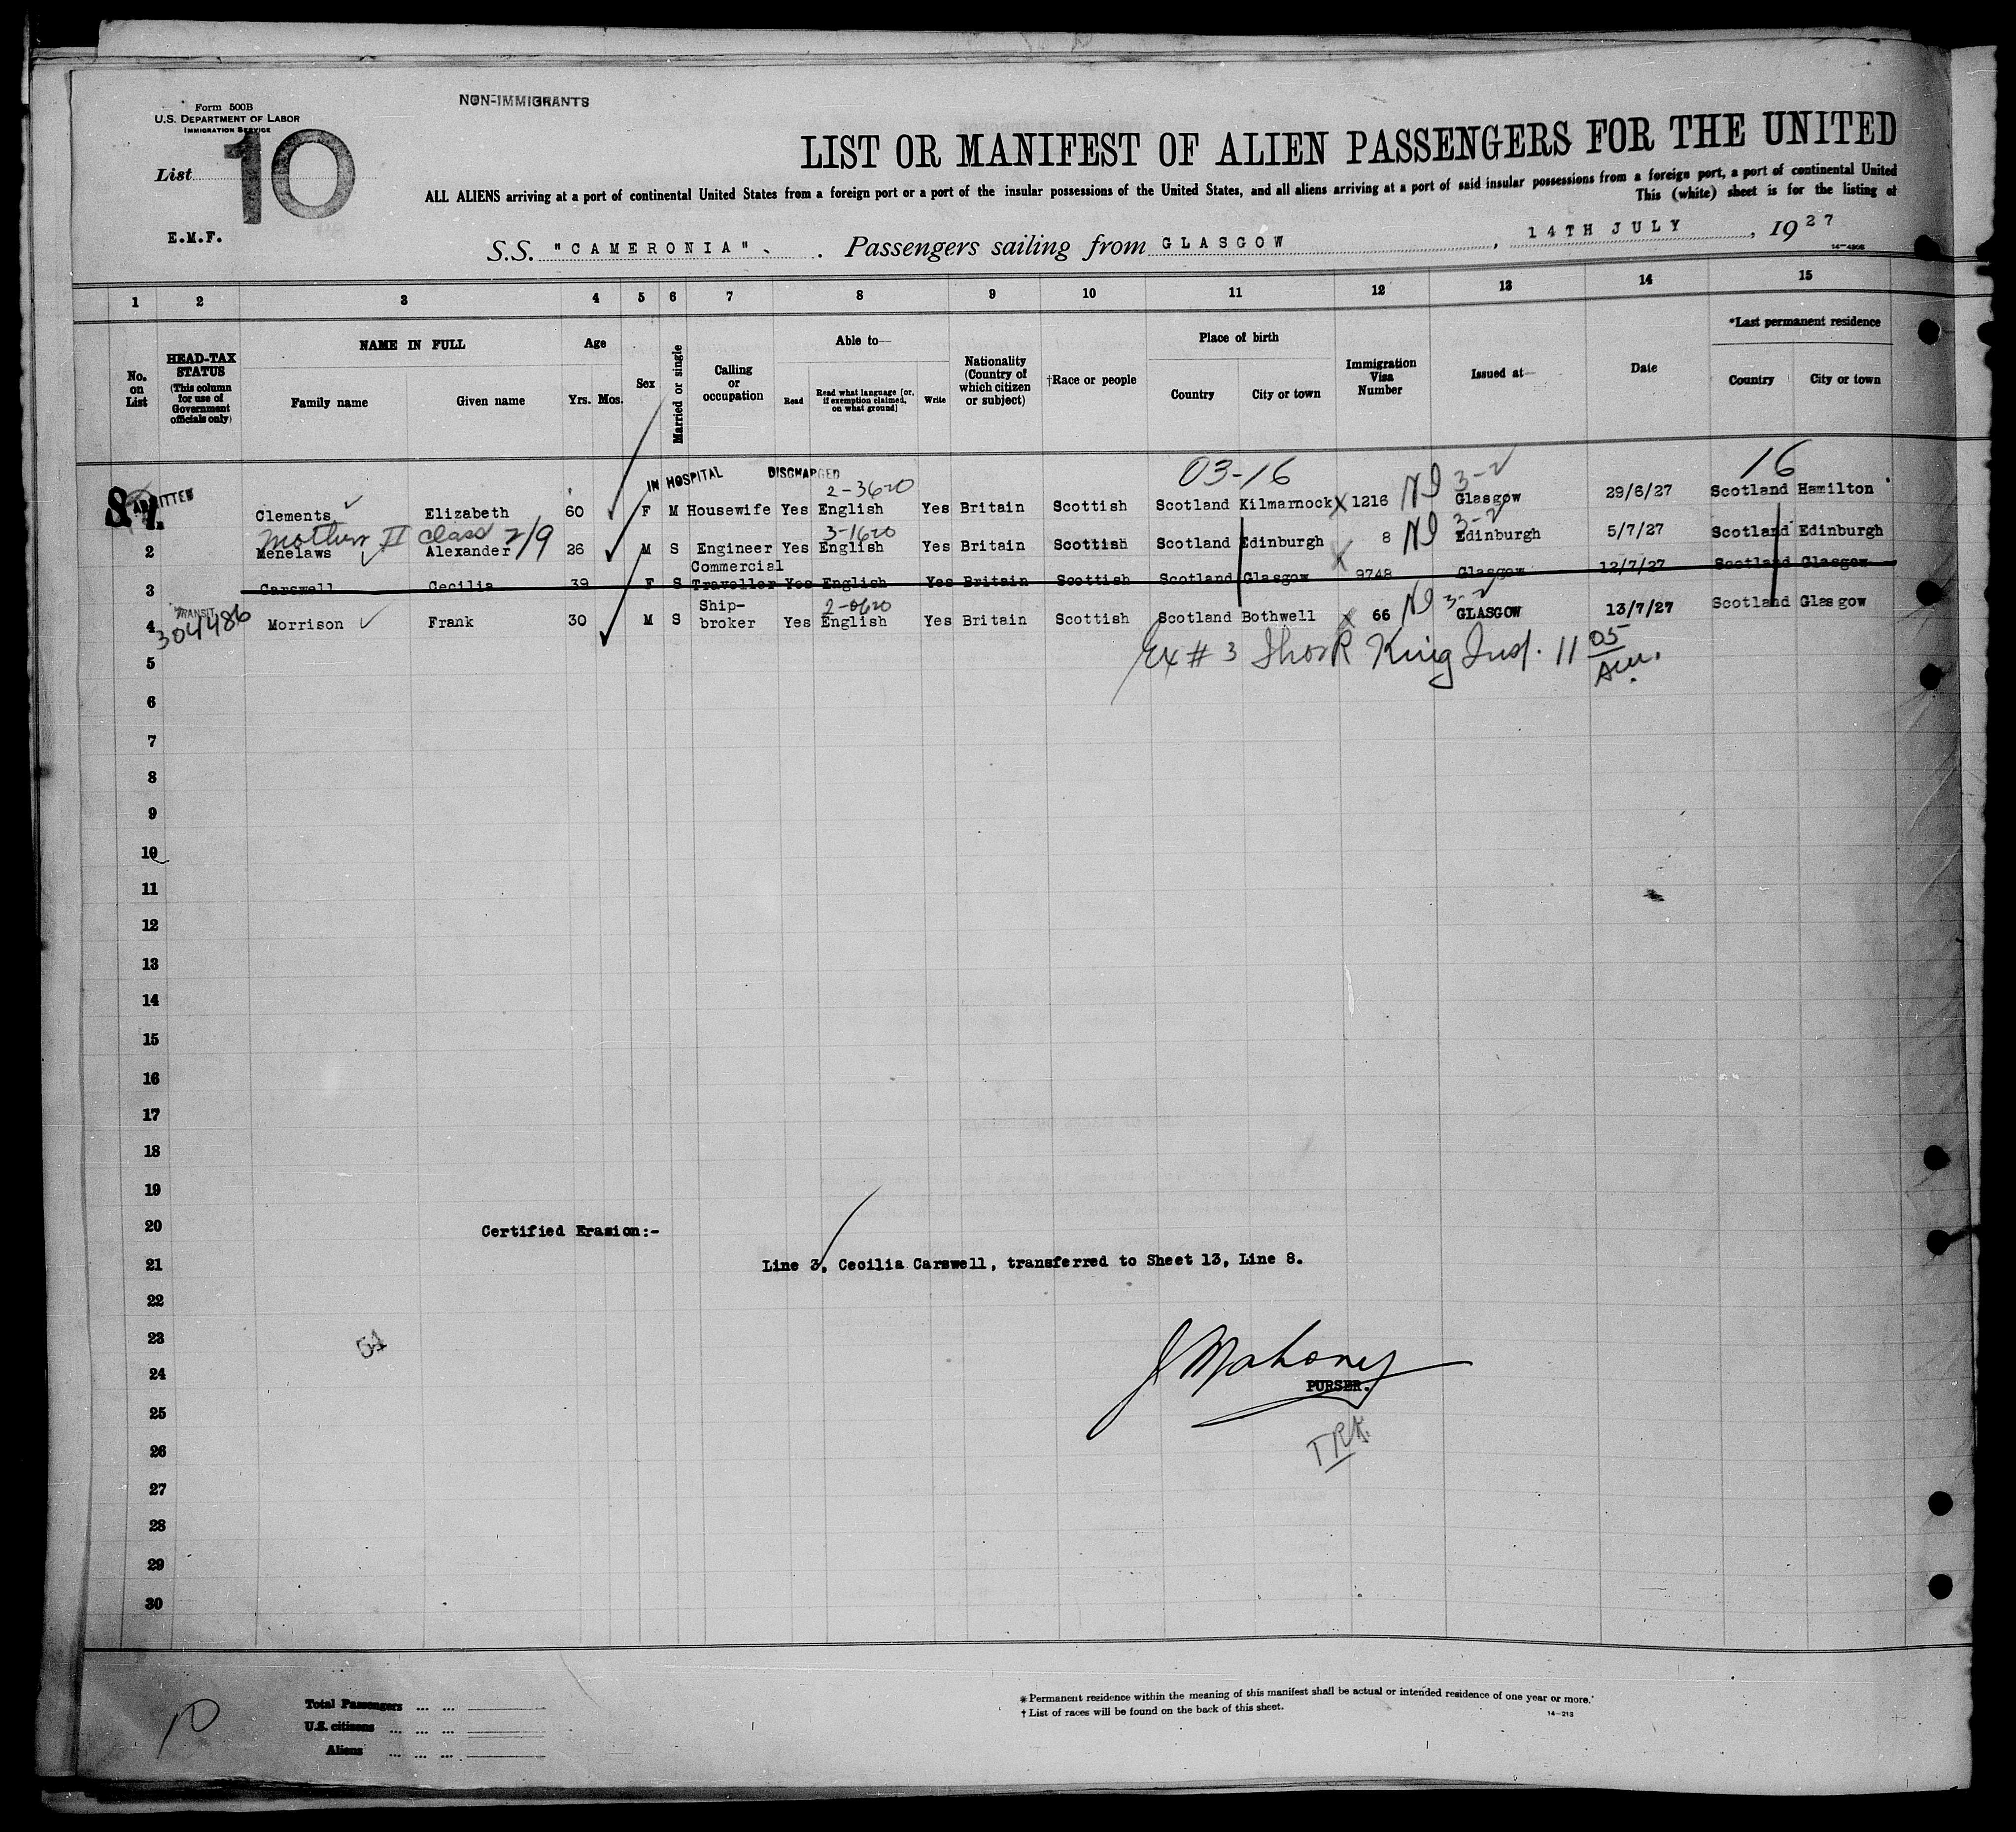 Form 500B
U.S. DEPARTMENT OF LABOR
IMMIGRATION SERVICE
NON-IMMIGRANTS
List 10
LIST OR MANIFEST OF ALIEN PASSENGERS FOR THE UNITED
ALL ALIENS arriving at a port of continental United States from a foreign port or a port of the insular possessions of the United States, and all aliens arriving at a port of said insular possessions from a foreign port, a port of continental United
This (white) sheet is for the listing of
E.M.F.
S.S. "CAMERONIA". Passengers sailing from GLASGOW, 14TH JULY, 1927
14-4806
1 2 3 4 5 6 7 8 9 10 11 12 13 14 15
No. on List
HEAD-TAX STATUS (This column for use of Government officials only)
NAME IN FULL
Family name Given name
Age
Yrs. Mos.
Sex
Married or single
Calling or occupation
Able to—
Read Read what language [or, if exemption claimed, on what ground] Write
Nationality (Country of which citizen or subject)
†Race or people
Place of birth
Country City or town
Immigration Visa Number
Issued at—
Date
*Last permanent residence
Country City or town
IN HOSPITAL DISCHARGED 03-16 16
ADMITTED
2-3620 NI 3-2
Clements Elizabeth 60 F M Housewife Yes English Yes Britain Scottish Scotland Kilmarnock 1216 Glasgow 29/6/27 Scotland Hamilton
Mother II class 2/9 3-1620 NI 3-2
2 Menelaws Alexander 26 M S Engineer Yes English Yes Britain Scottish Scotland Edinburgh 8 Edinburgh 5/7/27 Scotland Edinburgh
3 Carswell Cecilia 39 F S Commercial Traveller Yes English Yes Britain Scottish Scotland Glasgow 9748 Glasgow 12/7/27 Scotland Glasgow
TRANSIT 304486 2-0620 NI 3-2
4 Morrison Frank 30 M S Ship-broker Yes English Yes Britain Scottish Scotland Bothwell 66 GLASGOW 13/7/27 Scotland Glasgow
Ex # 3 King Insp. 11 05 AM.
5
6
7
8
9
10
11
12
13
14
15
16
17
18
19
20 Certified Erasion:-
21 Line 3, Cecilia Carswell, transferred to Sheet 13, Line 8.
22
23
24 J Mahoney
PURSER.
25
26
27
28
29
30
Total Passengers
U.S. citizens
Aliens
*Permanent residence within the meaning of this manifest shall be actual or intended residence of one year or more.
†List of races will be found on the back of this sheet.
14-213